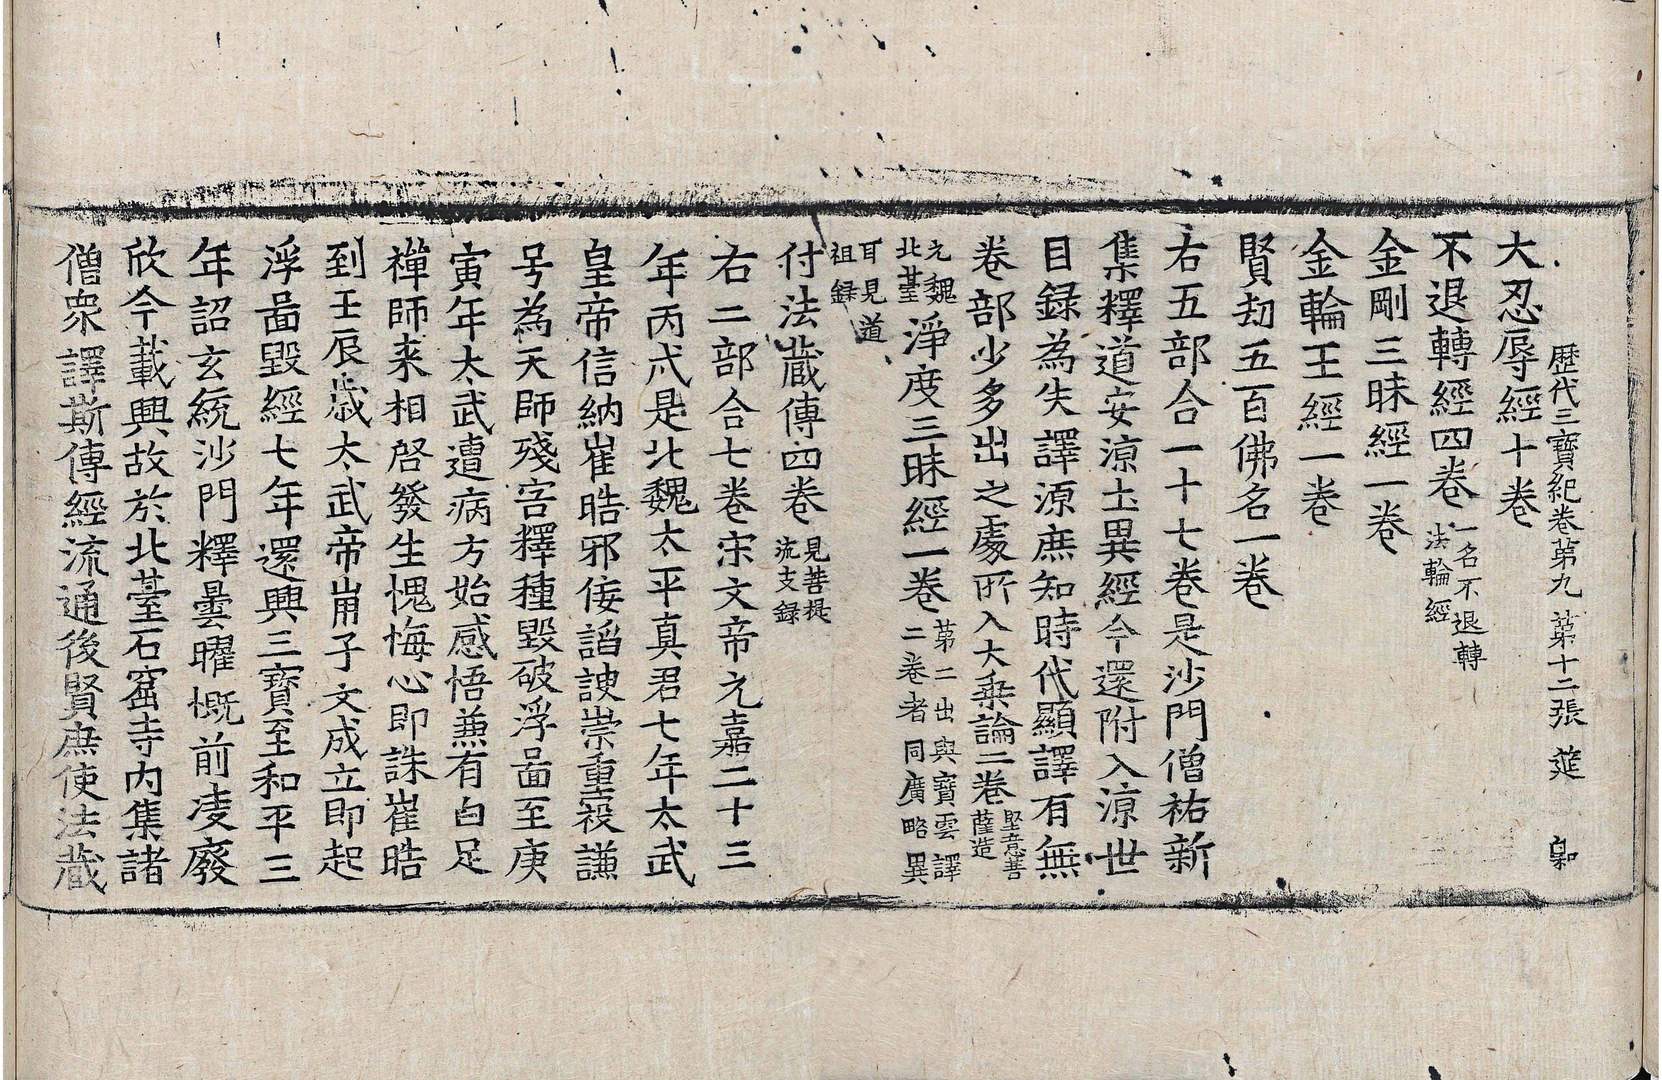 歷代三寶紀卷第九 第十二張 筵
大忍辱經十卷
不退轉經四卷 一名不退轉法輪經
金剛三昧經一卷
金輪王經一卷
賢劫五百佛名一卷
右五部合一十七卷是沙門僧祐新
集釋道安涼土異經今還附入涼世
目録為失譯源庶知時代顯譯有無
卷部少多出之處所入大乘論二卷 堅意菩薩造
元魏北臺 淨度三昧經一卷 第二出與寶雲譯二卷者同廣略異
耳見道祖録
付法藏傳四卷 見菩提流支録
右二部合七卷宋文帝元嘉二十三
年丙戌是北魏太平真君七年太武
皇帝信納崔皓邪佞諂諛崇重寇謙
号為天師殘害釋種毀破浮啚至庚
寅年太武遭病方始感悟兼有白足
禪師来相啓發生愧悔心即誅崔皓
到壬辰歲太武帝崩子文成立即起
浮啚毀經七年還興三寶至和平三
年詔玄統沙門釋曇曜慨前凌廢
欣今載興故於北臺石窟寺內集諸
僧衆譯斯傳經流通後賢庶使法藏